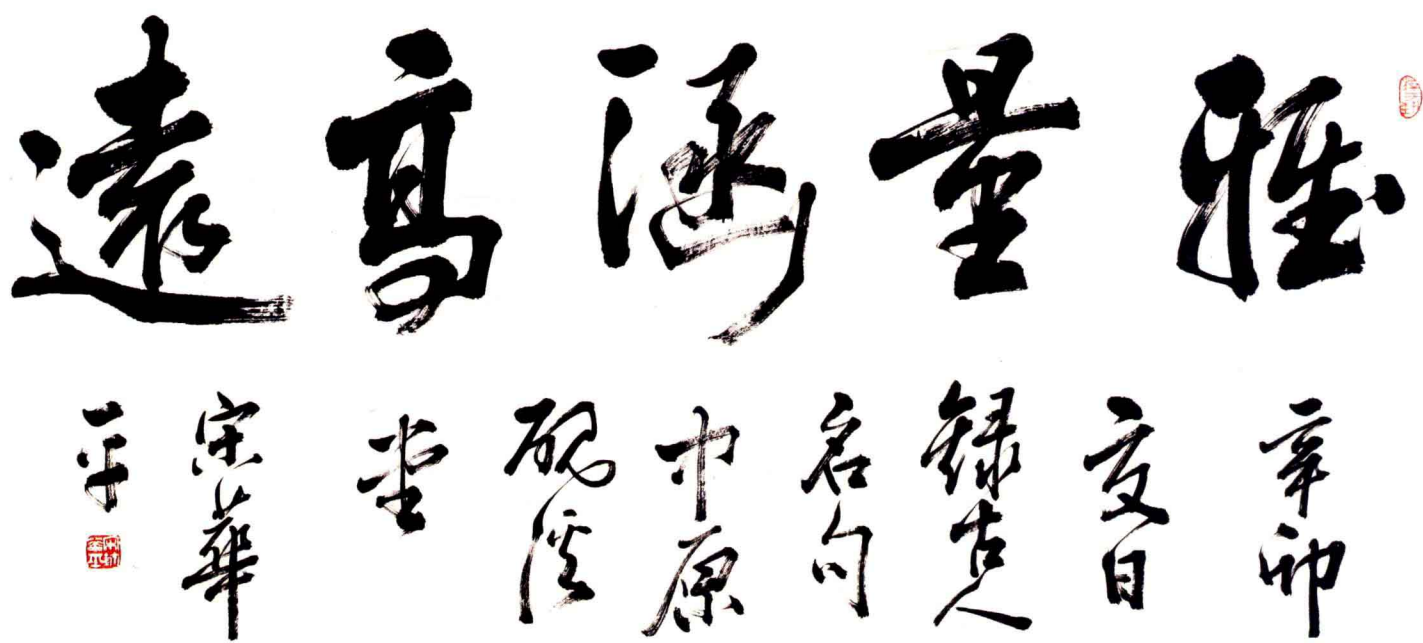 雅量涵高遠
辛卯
夏日
録古人
名句
中原
砚溪
堂
宋華
平